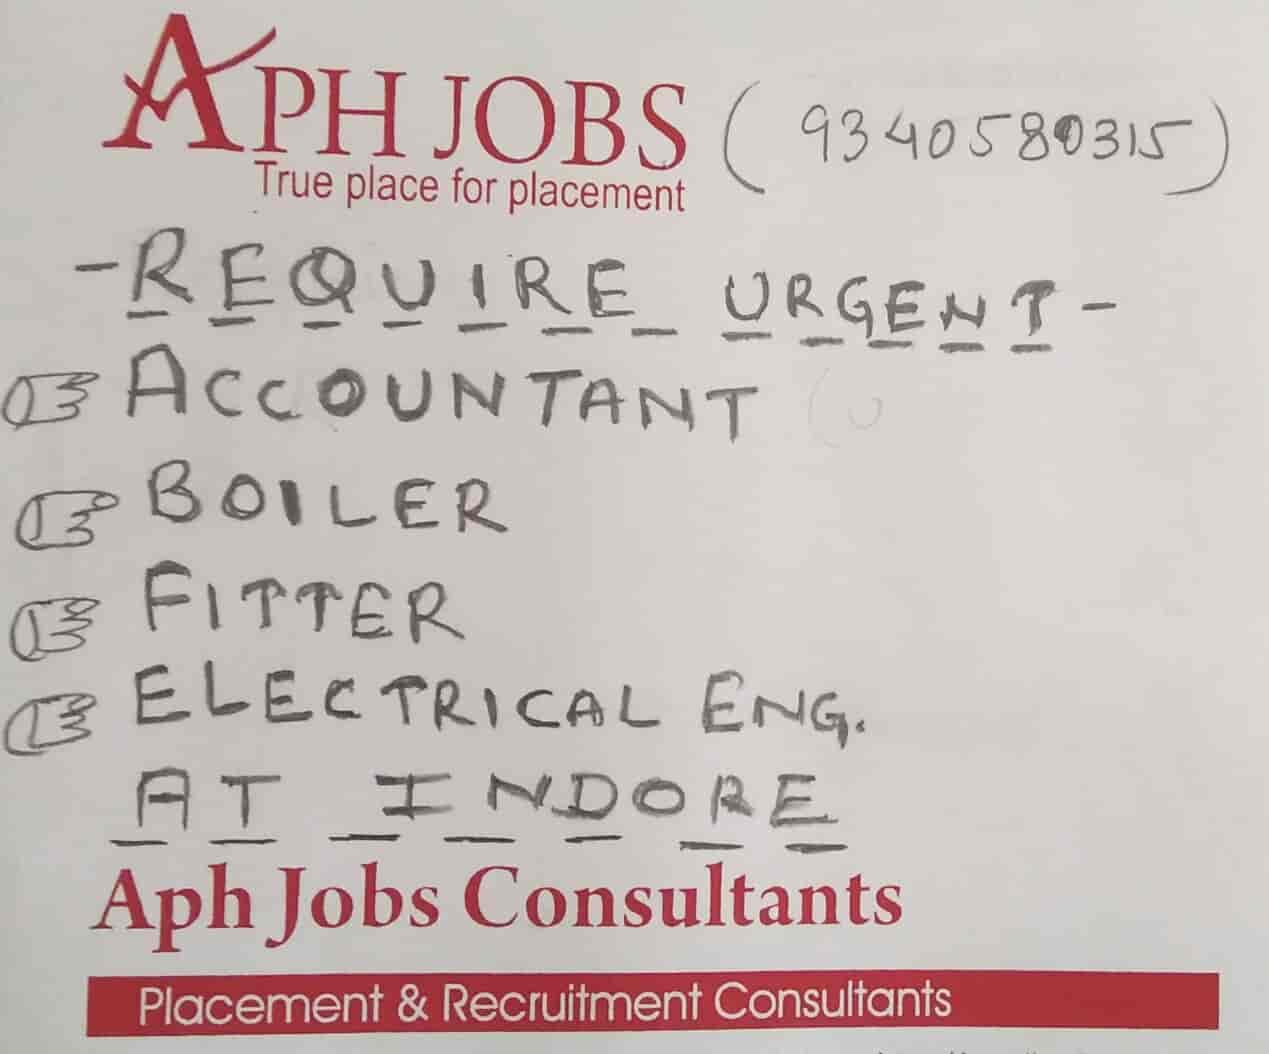 APH JOBS (9340580315)
True place for placement
- REQUIRE URGENT -
ACCOUNTANT
BOILER
FITTER
ELECTRICAL ENG.
AT INDORE
Aph Jobs Consultants
Placement & Recruitment Consultants